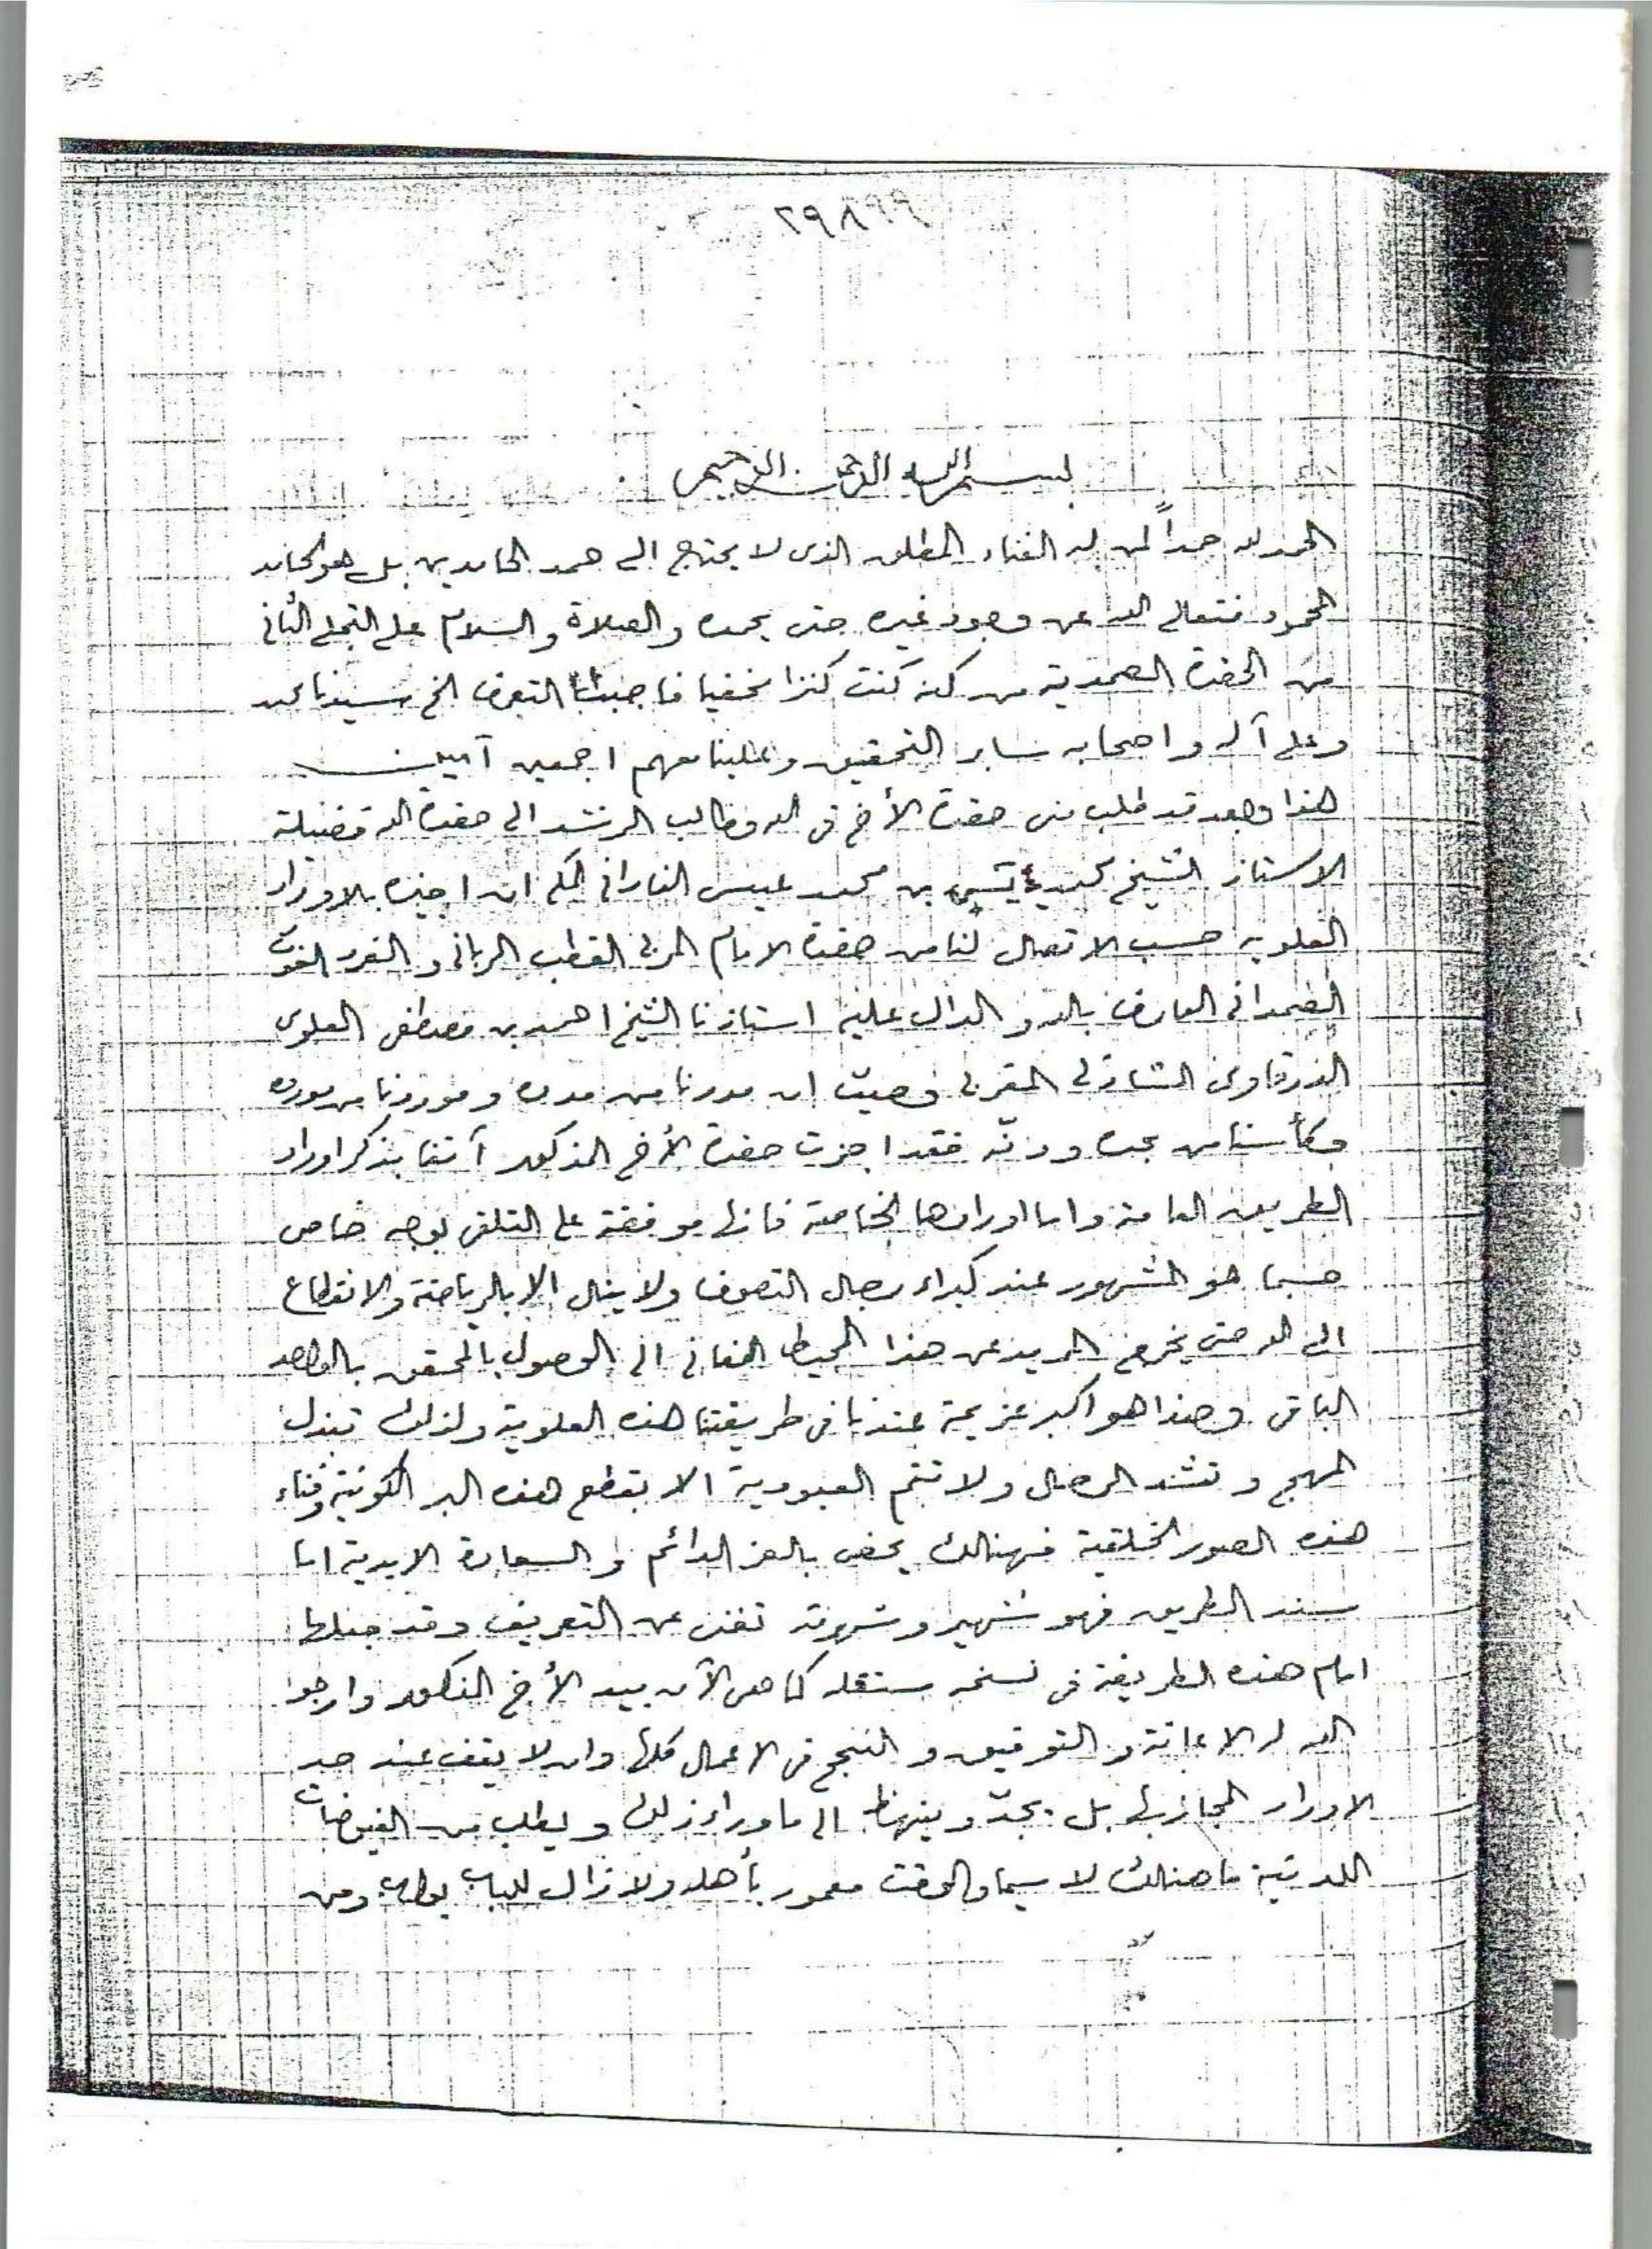 ٢٩٨٩٩
بسم الله الرحمن الرحيم
الحمد لله حمداً لمن له الغناء المطلق الذى لا يحتاج الى حمد الحامدين بل هو الحامد
المحمود فتعالى الله عن وجود غيره حتى يحمده والصلاة والسلام على التجلى الثانى
من الحضرة الصمدية من كنه كنت كنزا مخفيا فاحببت التعرف الخ سيدنا محمد
وعلى آله واصحابه ساير التحقيق وعلينا معهم اجمعين آمين
هذا وبعد قد طلب منى حضرة الأخ فى الله وطالب الرشد الى حضرة الله فضيلة
الاستاذ الشيخ محمد يسين بن محمد عيسى الفادانى المكى ان اجيزه بالاوراد
العلويه حسب الاتصال لنا من حضرة الامام المربى القطب الربانى والفرد الغوث
الصمدانى العارف بالله والدال عليه استاذنا الشيخ احمد بن مصطفى العلوى
الدرقاوى الشاذلى المغربى وحيث ان مددنا من مدده وموردنا من مورده
وكأسنا من بحره ودنّه فقد اجزت حضرة الأخ المذكور آنفا بذكر اوراد
الطريق العامة واما اورادها الخاصة فانها موقفة على التلقى بوجه خاص
حسبما هو المشهور عند كبراء رجال التصوف ولا ينال الا بالرياضة والانقطاع
الى الله حتى يخرج المريد عن هذا المحيط الفانى الى الوصول بالمحقق بالواحد
الباقى وهذا هو اكبر عزيمة عندنا فى طريقتنا هذه العلوية ولذلك تبذل
المهج وتشد الرحال ولا تتم العبودية الا بقطع هذه الكونية وفناء
هذه الصور الخلقية فهنالك يحضى بالعز الدائم والسعادة الابدية اما
سند الطريق فهو شهير وشهرته تغنى عن التعريف وقد جعلها
امام هذه الطريقة فى نسخه مستقله كما هى الآن بيد الأخ المذكور وارجو
الله له الاعانة والتوفيق والنجح فى الاعمال كلها وان لا يقف عند حد
الاوراد المجاز بها بل يجدّ وينهظ الى ما وراء ذلك ويطلب من الفيوضات
اللدنية ما هنالك لا سيما والوقت معمور بأهله ولازال للباب بواب ومن